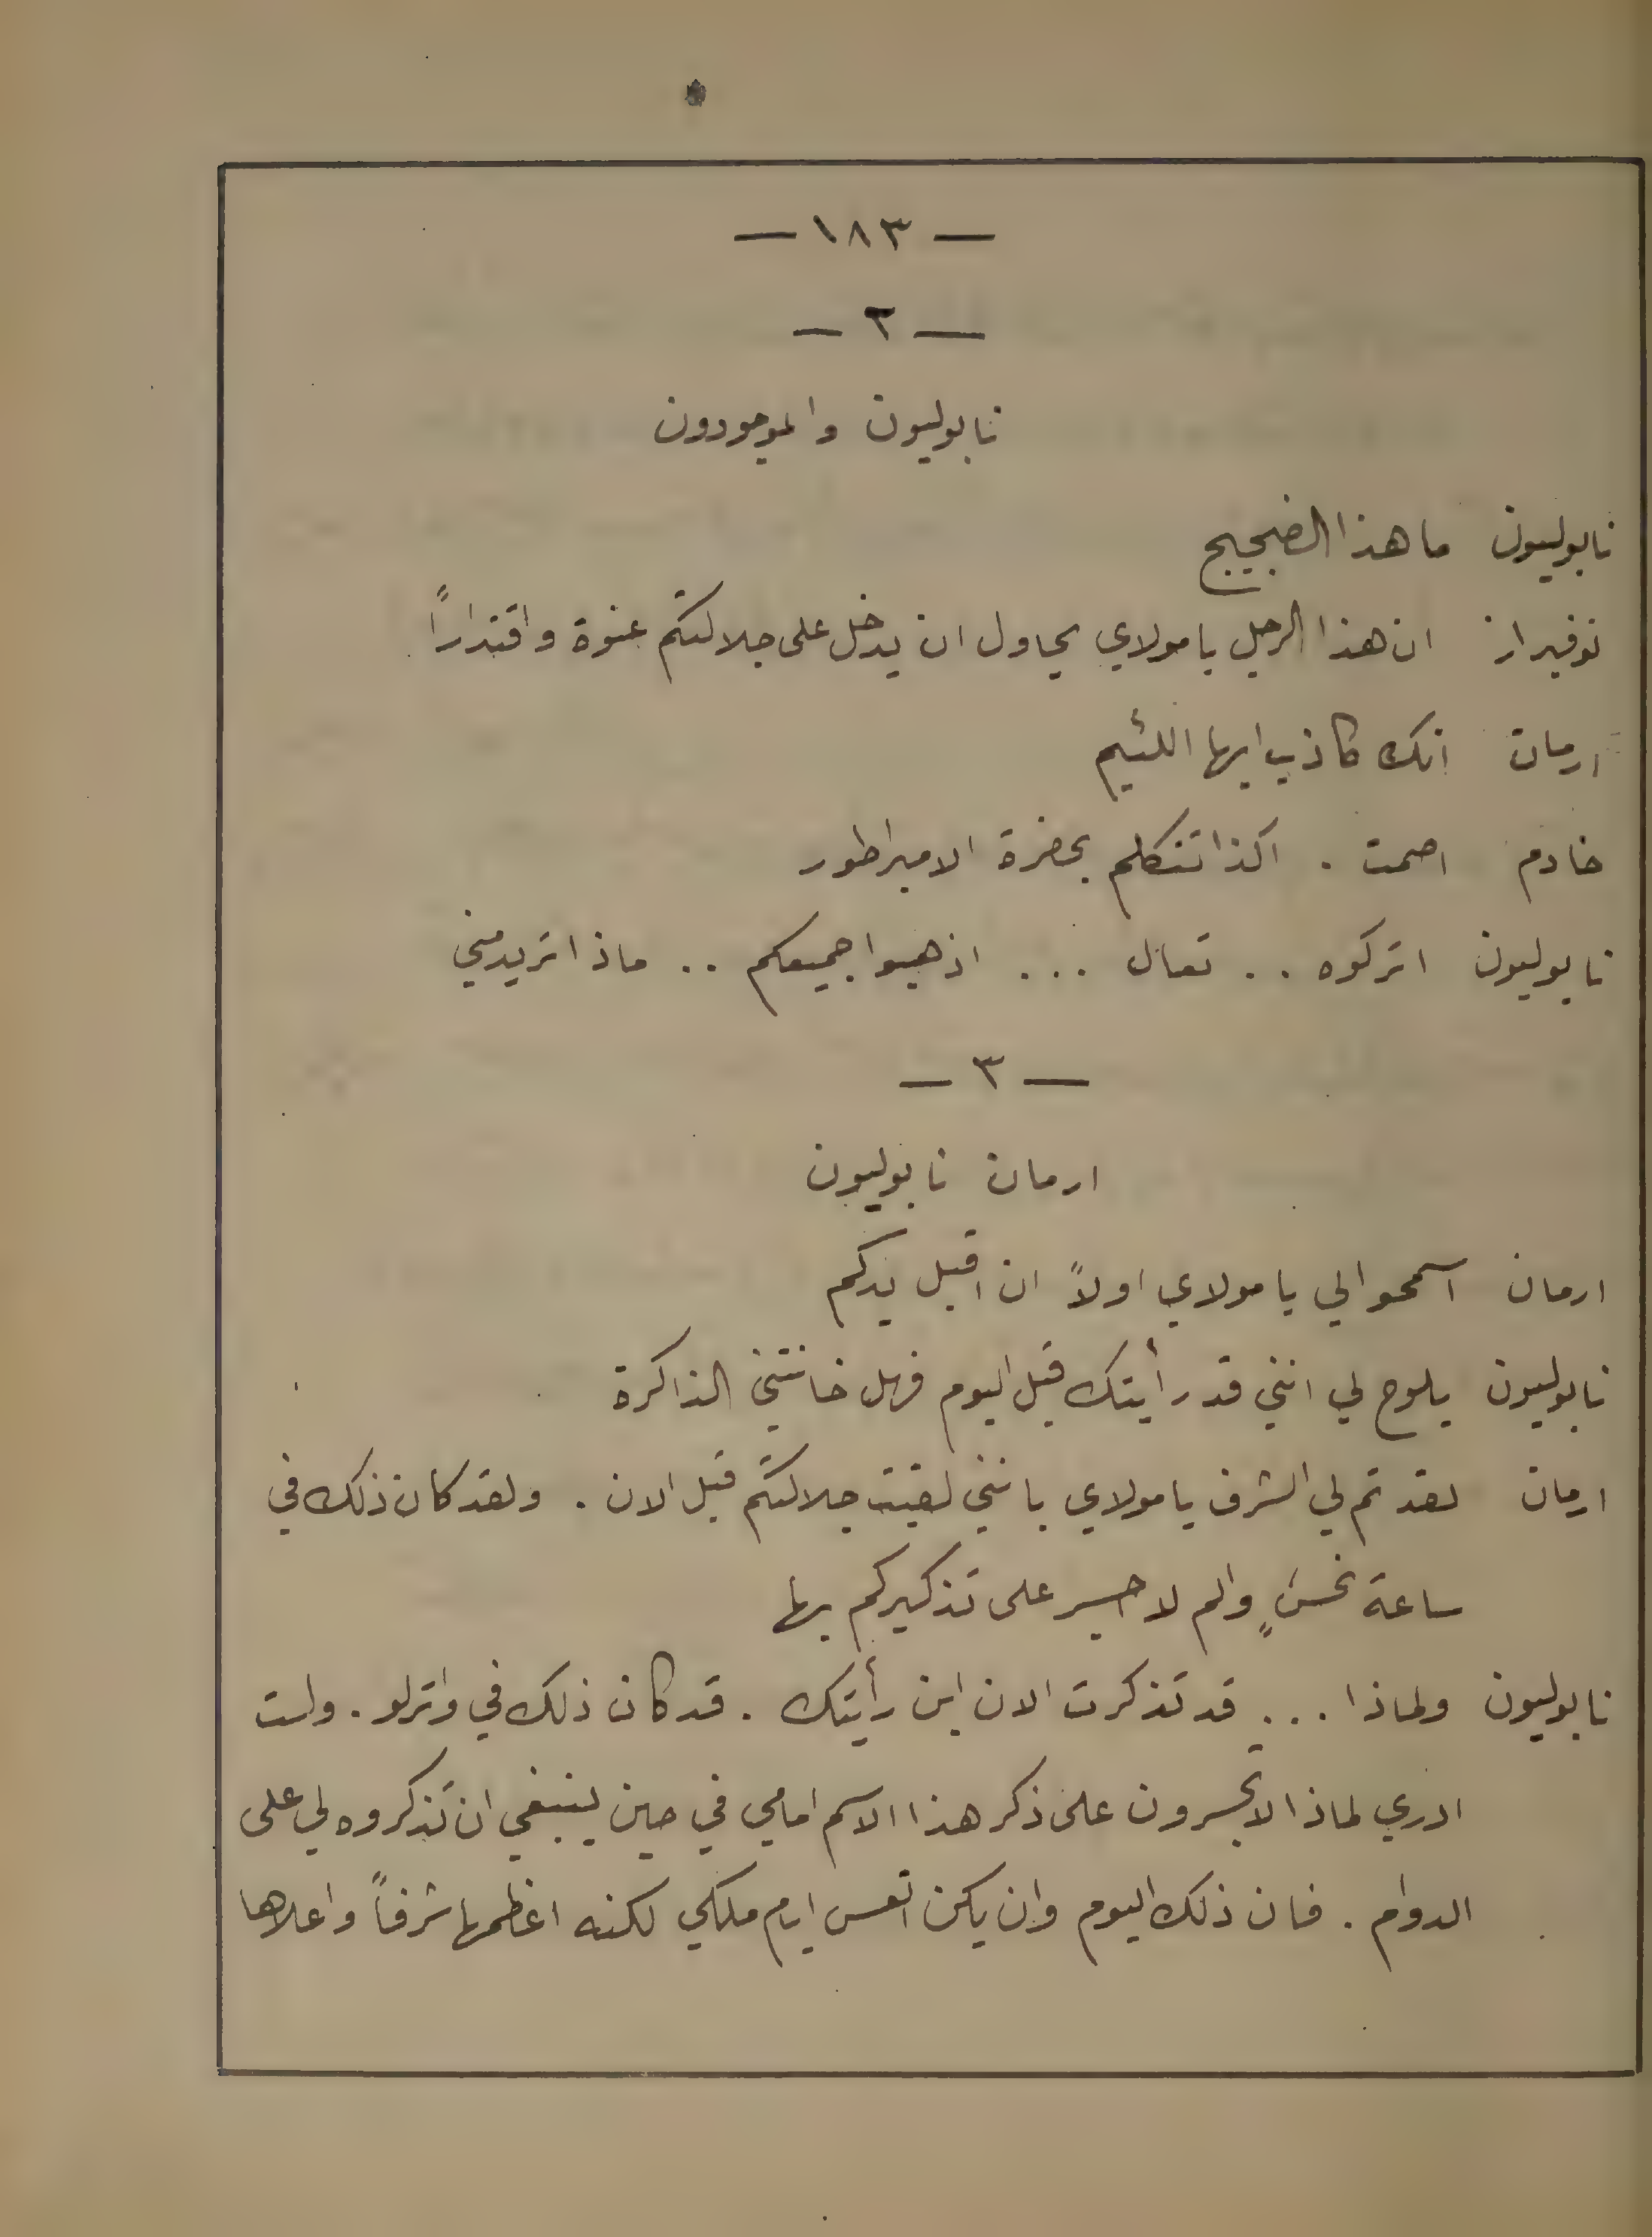 — ١٨٣ —
— ٢ —
نابوليون والموجودون
نابوليون ما هذا الضجيج
نوفيراز ان هذا الرجل يا مولاي يحاول ان يدخل على جلالتكم عنوة واقتداراً
ارمان انك كاذب ايها اللئيم
خادم اصمت . اكذا تتكلم بحضرة الامبراطور
نابوليون اتركوه .. تعال ... اذهبوا جميعكم .. ماذا تريد مني
— ٣ —
ارمان نابوليون
ارمان اسمحوا لي يا مولاي اولاً ان اقبل يدكم
نابوليون يلوح لي انني قد رأيتك قبل اليوم فهل خانتني الذاكرة
ارمان لقد تم لي الشرف يا مولاي بانني لقيت جلالتكم قبل الان . ولقد كان ذلك في
ساعة نحسٍ والم لا اجسر على تذكيركم بها
نابوليون ولماذا ... قد تذكرت الان اين رأيتك . قد كان ذلك في واترلو . ولست
ادري لماذا لا تجسرون على ذكر هذا الاسم امامي في حين ينبغي ان تذكروه لي على
الدوام . فان ذلك اليوم وان يكن اتعس ايام ملكي لكنه اعظمها شرفاً واعلاها